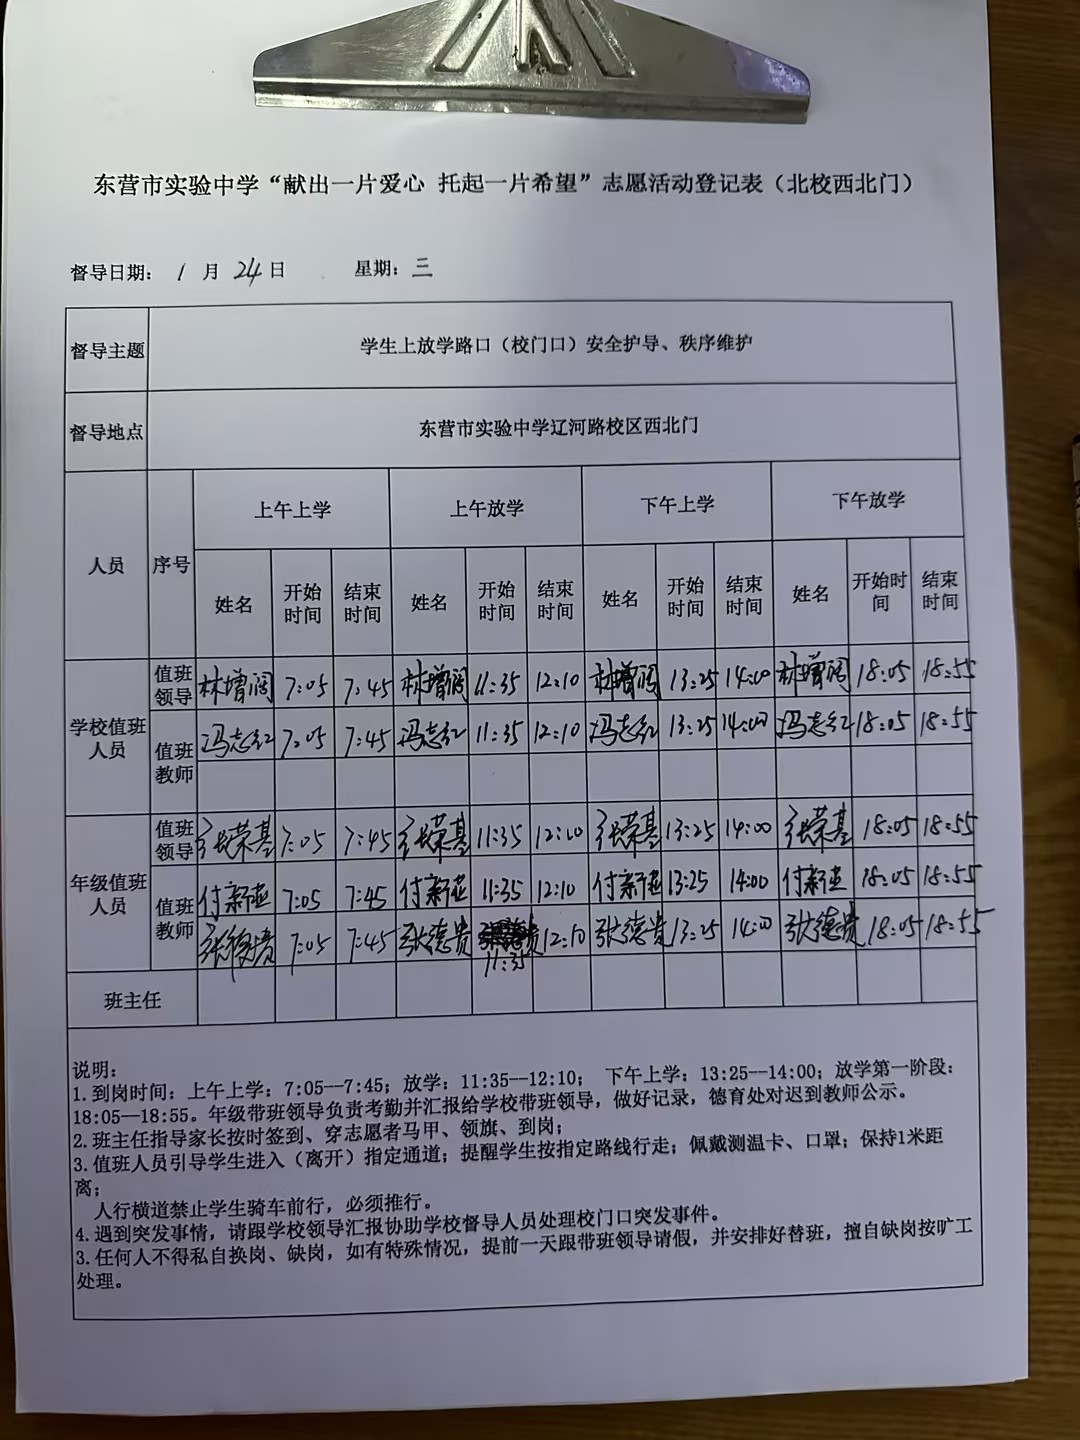 东营市实验中学“献出一片爱心 托起一片希望”志愿活动登记表（北校西北门）
督导日期： 1 月 24 日 星期：三
督导主题 学生上放学路口（校门口）安全护导、秩序维护
督导地点 东营市实验中学辽河路校区西北门
人员 序号 上午上学 上午放学 下午上学 下午放学
姓名 开始时间 结束时间 姓名 开始时间 结束时间 姓名 开始时间 结束时间 姓名 开始时间 结束时间
学校值班人员 值班领导 林增阔 7:05 7:45 林增阔 11:35 12:10 林增阔 13:25 14:00 林增阔 18:05 18:55
值班教师 冯志红 7:05 7:45 冯志红 11:35 12:10 冯志红 13:25 14:00 冯志红 18:05 18:55
年级值班人员 值班领导 张荣基 7:05 7:45 张荣基 11:35 12:10 张荣基 13:25 14:00 张荣基 18:05 18:55
值班教师 付新亚 7:05 7:45 付新亚 11:35 12:10 付新亚 13:25 14:00 付新亚 18:05 18:55
张德贵 7:05 7:45 张德贵 11:35 12:10 张德贵 13:25 14:00 张德贵 18:05 18:55
班主任
说明：
1.到岗时间：上午上学：7:05--7:45；放学：11:35--12:10； 下午上学：13:25--14:00；放学第一阶段：
18:05--18:55。年级带班领导负责考勤并汇报给学校带班领导，做好记录，德育处对迟到教师公示。
2.班主任指导家长按时签到、穿志愿者马甲、领旗、到岗；
3.值班人员引导学生进入（离开）指定通道；提醒学生按指定路线行走；佩戴测温卡、口罩；保持1米距
离；
人行横道禁止学生骑车前行，必须推行。
4.遇到突发事情，请跟学校领导汇报协助学校督导人员处理校门口突发事件。
3.任何人不得私自换岗、缺岗，如有特殊情况，提前一天跟带班领导请假，并安排好替班，擅自缺岗按旷工
处理。